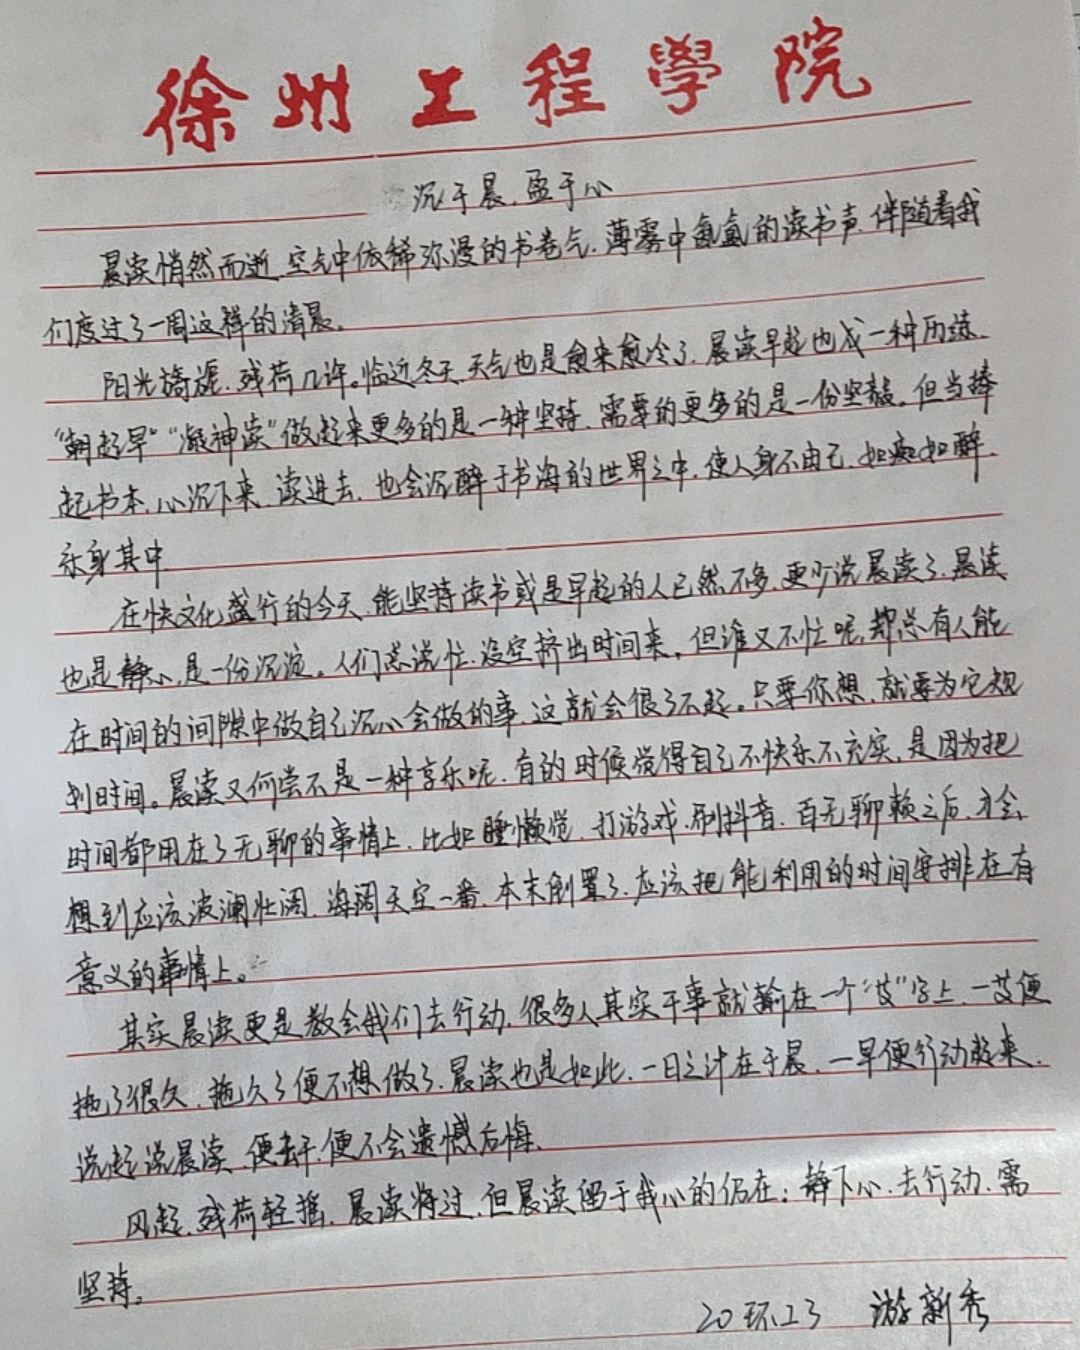 徐州工程學院
沉于晨，盈于心
晨读悄然而逝，空气中依稀弥漫的书卷气，薄雾中氤氲的读书声，伴随着我
们度过了一周这样的清晨。
阳光旖旎，残荷几许。临近冬天，天气也是愈来愈冷了，晨读早起也成一种历练，
“朝起早”“凝神读”做起来更多的是一种坚持，需要的更多的是一份坚毅。但当捧
起书本，心沉下来，读进去，也会沉醉于书海的世界之中，使人身不由己，如痴如醉，
乐身其中
在快文化盛行的今天，能坚持读书或是早起的人已然不多，更少说晨读了，晨读
也是静心，是一份沉淀。人们总说忙，没空挤出时间来，但谁又不忙呢，却总有人能
在时间的间隙中做自己沉心会做的事，这就会很了不起。只要你想，就要为它规
划时间。晨读又何尝不是一种享乐呢，有的时候觉得自己不快乐不充实，是因为把
时间都用在了无聊的事情上，比如睡懒觉，打游戏，刷抖音，百无聊赖之后，才会
想到应该波澜壮阔，海阔天空一番，本末倒置了，应该把能利用的时间安排在有
意义的事情上。
其实晨读更是教会我们去行动，很多人其实干事就输在一个“等”字上，一等便
拖了很久，拖久了便不想做了，晨读也是如此，一日之计在于晨，一早便行动起来，
说起说晨读，便去干，便不会遗憾后悔，
风起，残荷轻摇，晨读将过，但晨读留于我心的仍在：静下心，去行动，需
坚持。
20环23 游新秀